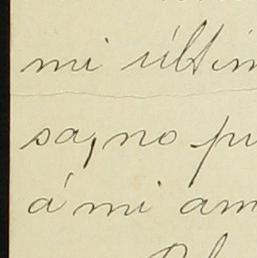 mi últim
sa, no pu
á mi am